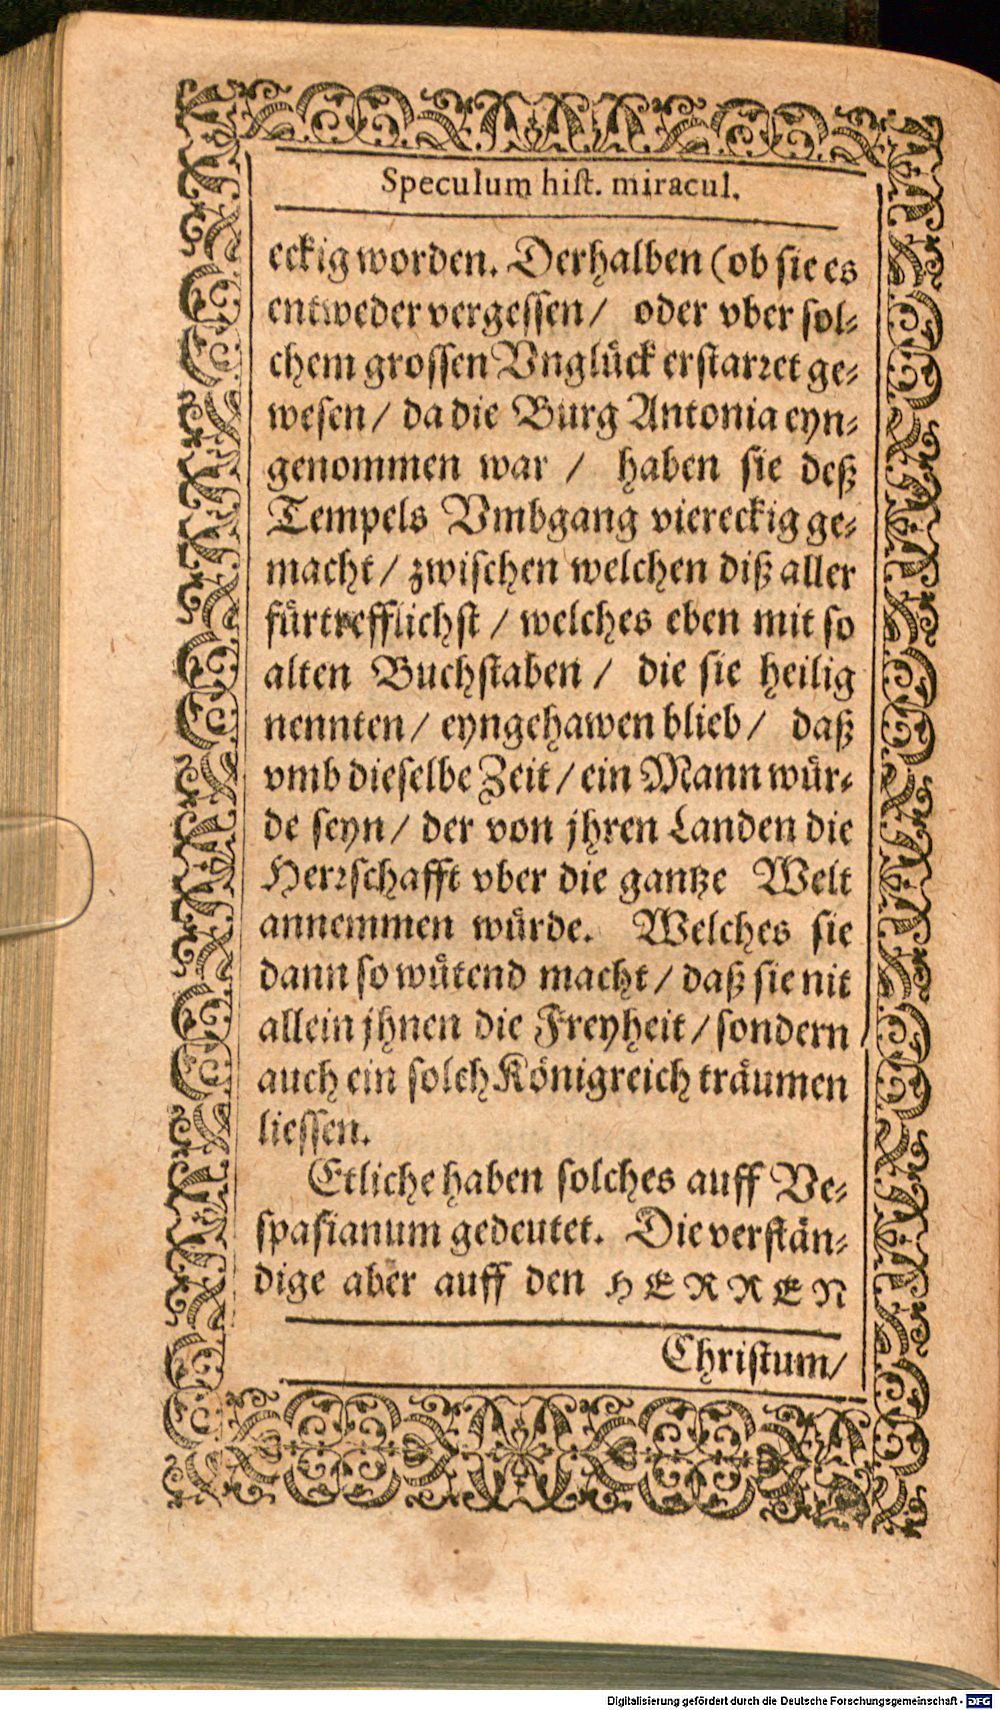 Speculum hiſt. miracul.
eckig worden. Derhalben (ob ſie es
entweder vergeſſen / oder vber ſol⸗
chem groſſen Vngluͤck erſtarꝛet ge⸗
weſen / da die Burg Antonia eyn⸗
genommen war / haben ſie deß
Tempels Vmbgang viereckig ge⸗
macht / zwiſchen welchen diß aller
fuͤrtrefflichſt / welches eben mit ſo
alten Buchſtaben / die ſie heilig
nennten / eyngehawen blieb / daß
vmb dieſelbe Zeit / ein Mann wuͤr⸗
de ſeyn / der von jhren Landen die
Herꝛſchafft vber die gantze Welt
annemmen wuͤrde. Welches ſie
dann ſo wuͤtend macht / daß ſie nit
allein jhnen die Freyheit / ſondern
auch ein ſolch Koͤnigreich traͤumen
lieſſen.
Etliche haben ſolches auff Ve⸗
ſpaſianum gedeutet. Die verſtaͤn⸗
dige aber auff den HERREN
Chriſtum /
Digitalisierung gefördert durch die Deutsche Forschungsgemeinschaft - DFG